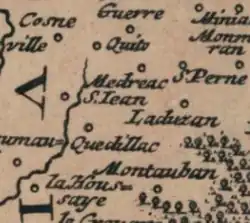 Guerre
Cosne
ville
Quito
Minia
Monm
ran
Medreac
S. Perne
S. Iean
A
Laduzan
uman=
Quedillac
Montauban
la Hous=
saye
I